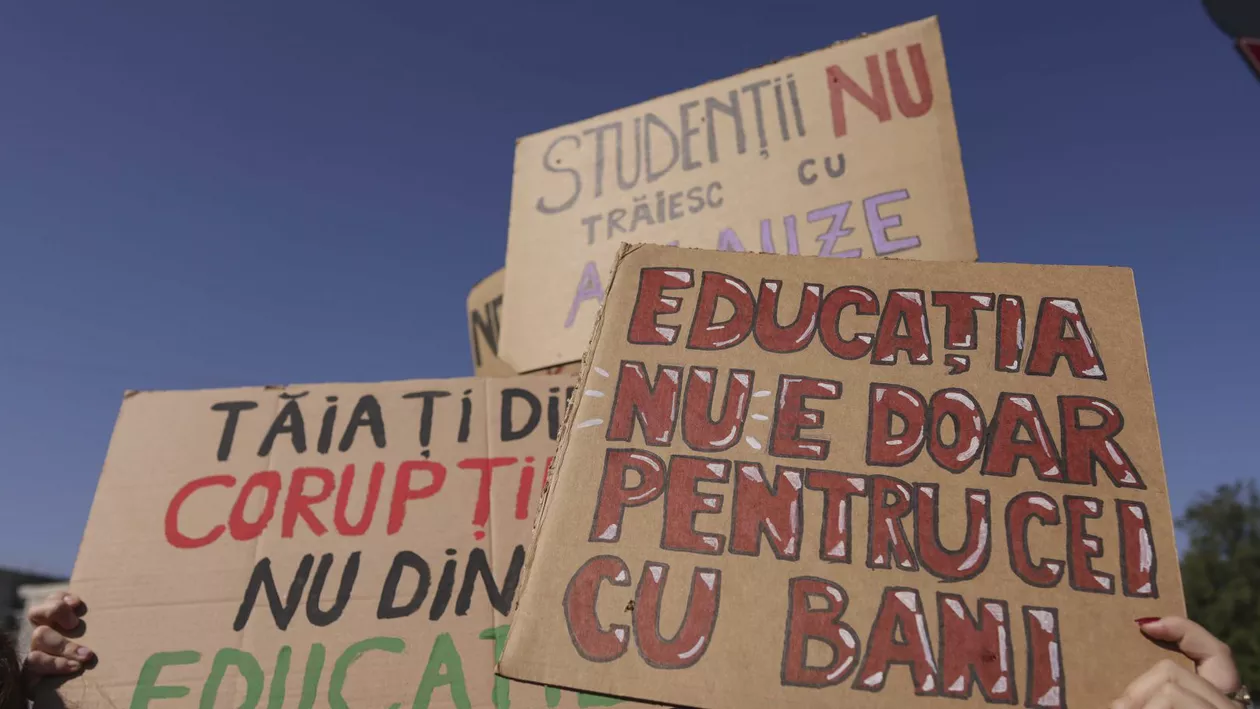 STUDENȚII NU
TRĂIESC CU
TĂIAȚI DIN
CORUPȚIE
NU DIN
EDUCAȚIE
EDUCAȚIA
NU E DOAR
PENTRU CEI
CU BANI